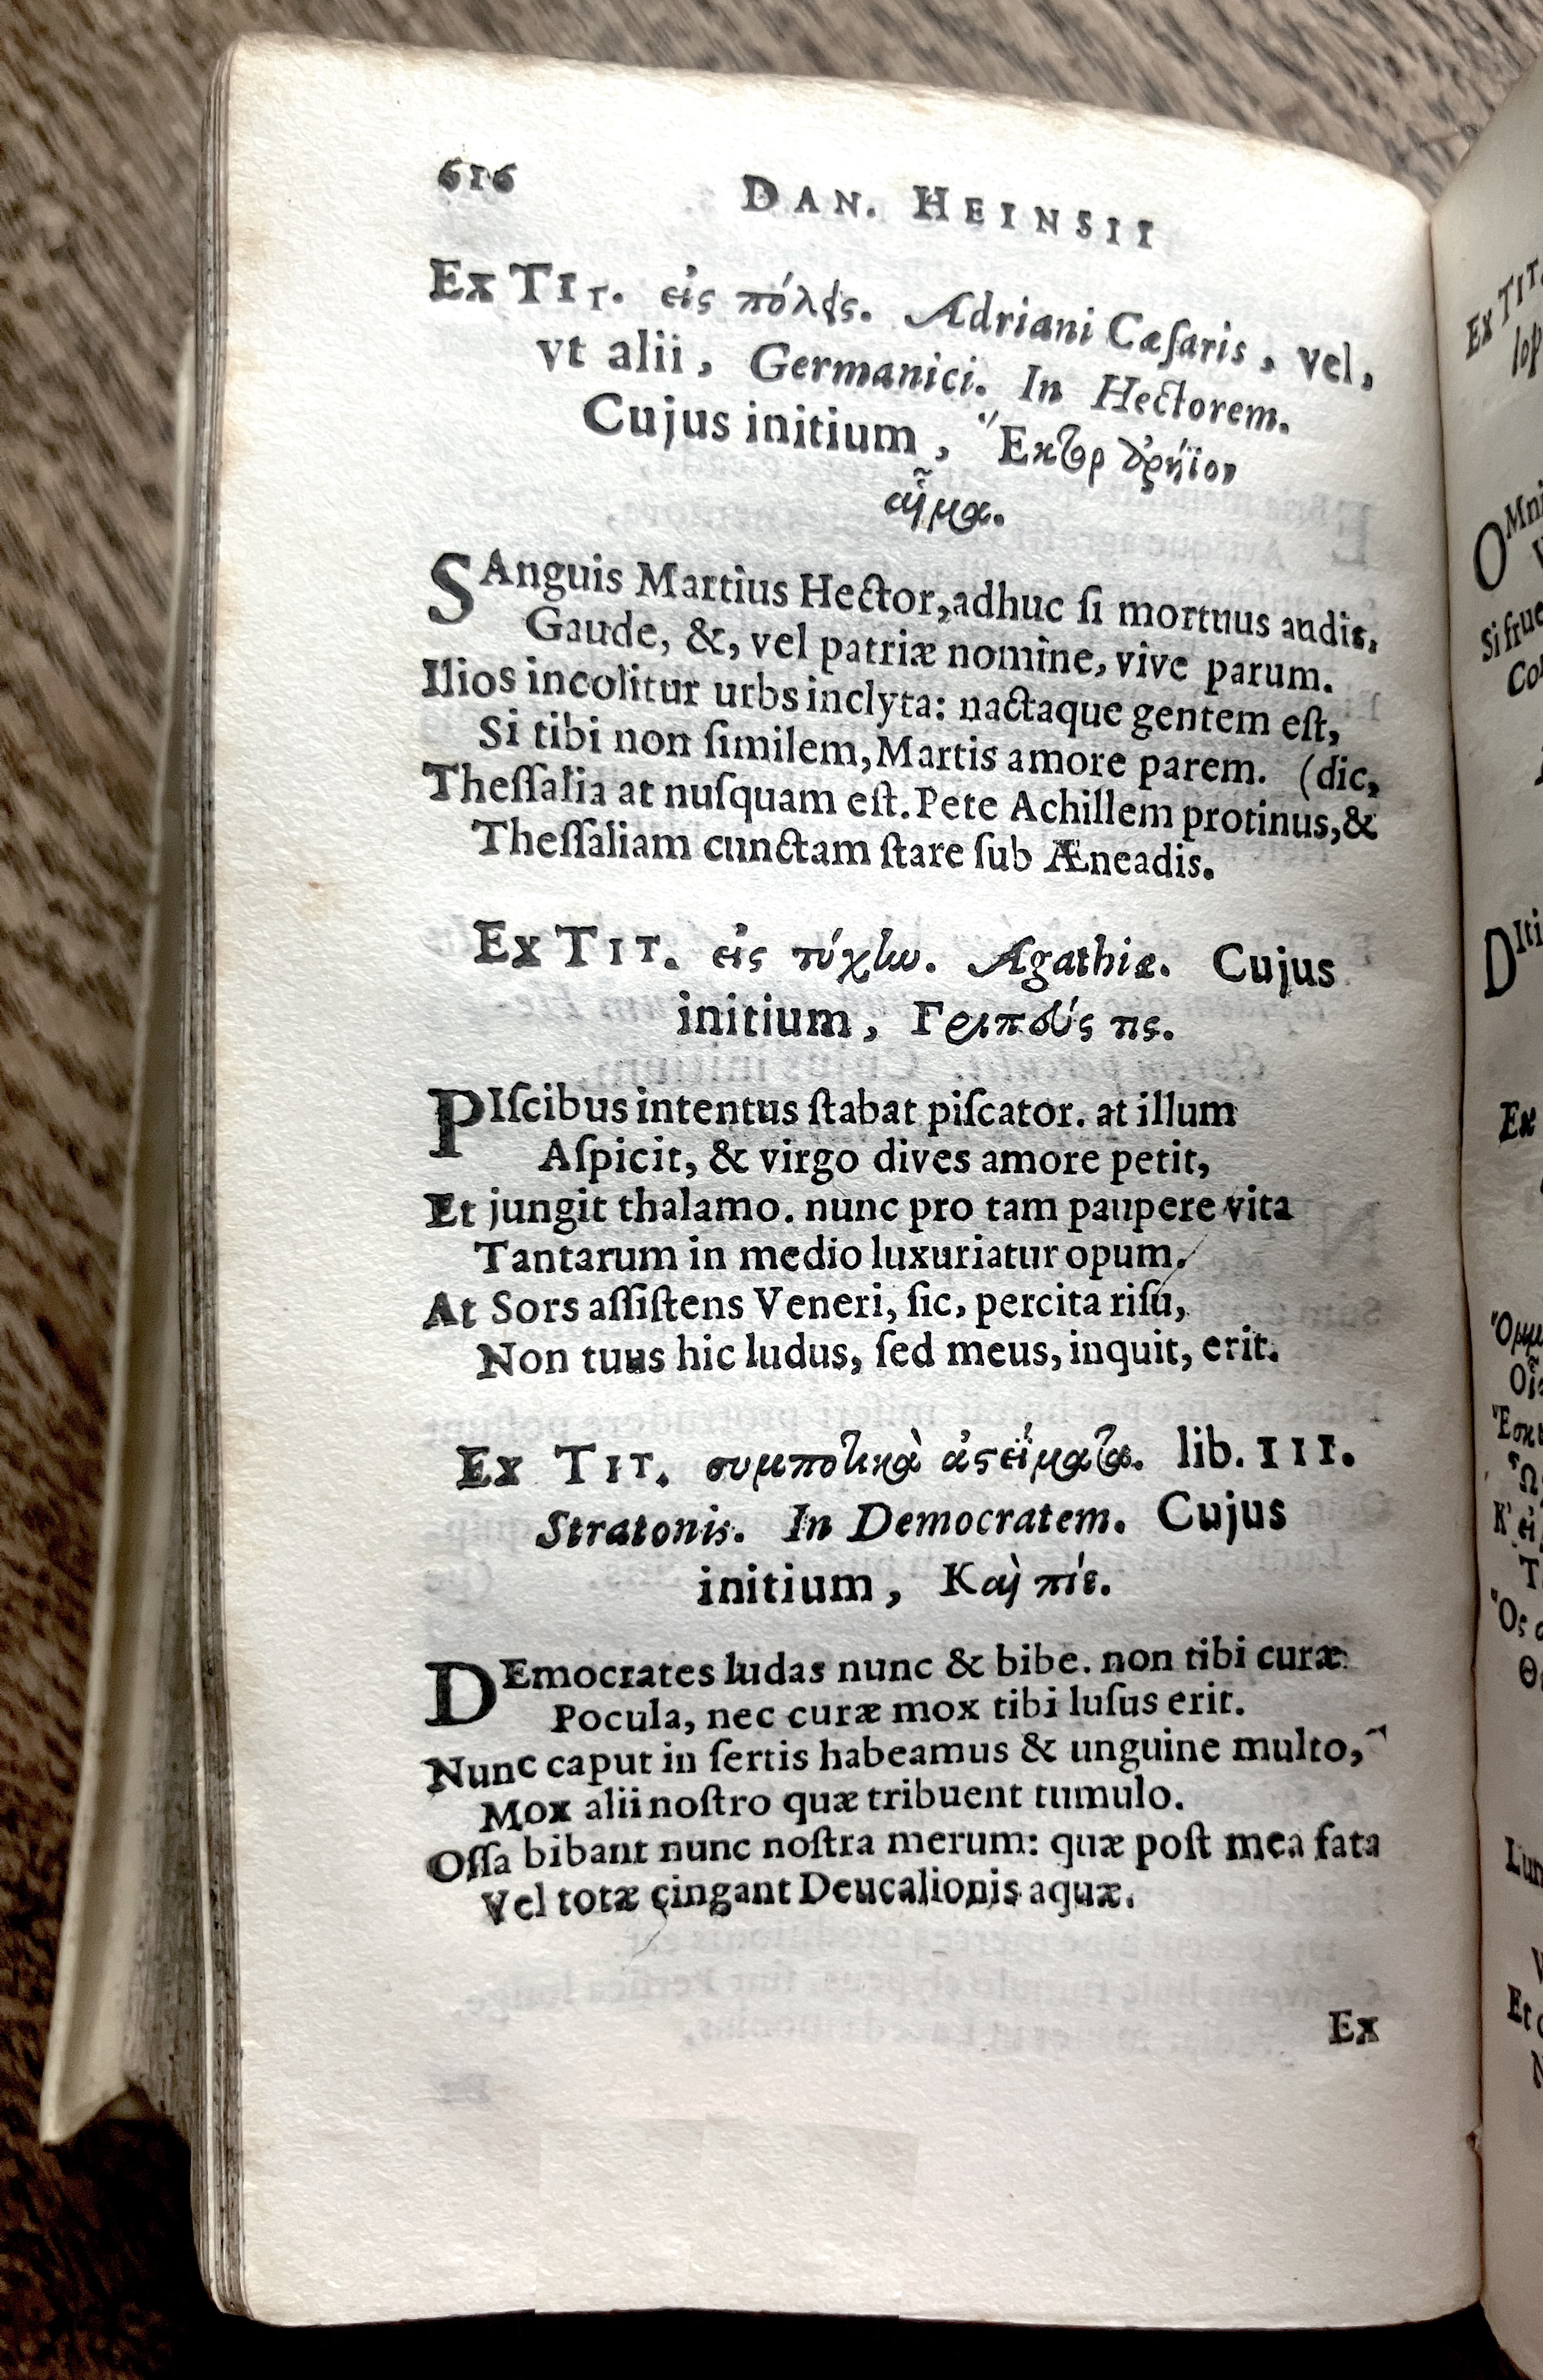 616 DAN. HEINSII
EX TIT. εἰς πόλεις. Adriani Cæſaris, vel,
vt alii, Germanici. In Hectorem.
Cujus initium, Ἕκτορ Ἀρήϊον
αἷμα.
SAnguis Martius Hector, adhuc ſi mortuus audis,
Gaude, &, vel patriæ nomine, vive parum.
Ilios incolitur urbs inclyta: nactaque gentem eſt,
Si tibi non ſimilem, Martis amore parem. (dic,
Theſſalia at nuſquam eſt. Pete Achillem protinus, &
Theſſaliam cunctam ſtare ſub Æneadis.
EX TIT. εἰς τύχην. Agathiæ. Cujus
initium, Γριπεύς τις.
PIſcibus intentus ſtabat piſcator. at illum
Aſpicit, & virgo dives amore petit,
Et jungit thalamo. nunc pro tam paupere vita
Tantarum in medio luxuriatur opum.
At Sors aſſiſtens Veneri, ſic, percita riſu,
Non tuus hic ludus, ſed meus, inquit, erit.
EX TIT. συμποτικὰ ἀστεΐσματα. lib. III.
Stratonis. In Democratem. Cujus
initium, Καὶ πίε.
DEmocrates ludas nunc & bibe. non tibi curæ
Pocula, nec curæ mox tibi luſus erit.
Nunc caput in ſertis habeamus & unguine multo,
Mox alii noſtro quæ tribuent tumulo.
Oſſa bibant nunc noſtra merum: quæ poſt mea fata
Vel totæ cingant Deucalionis aquæ.
Ex